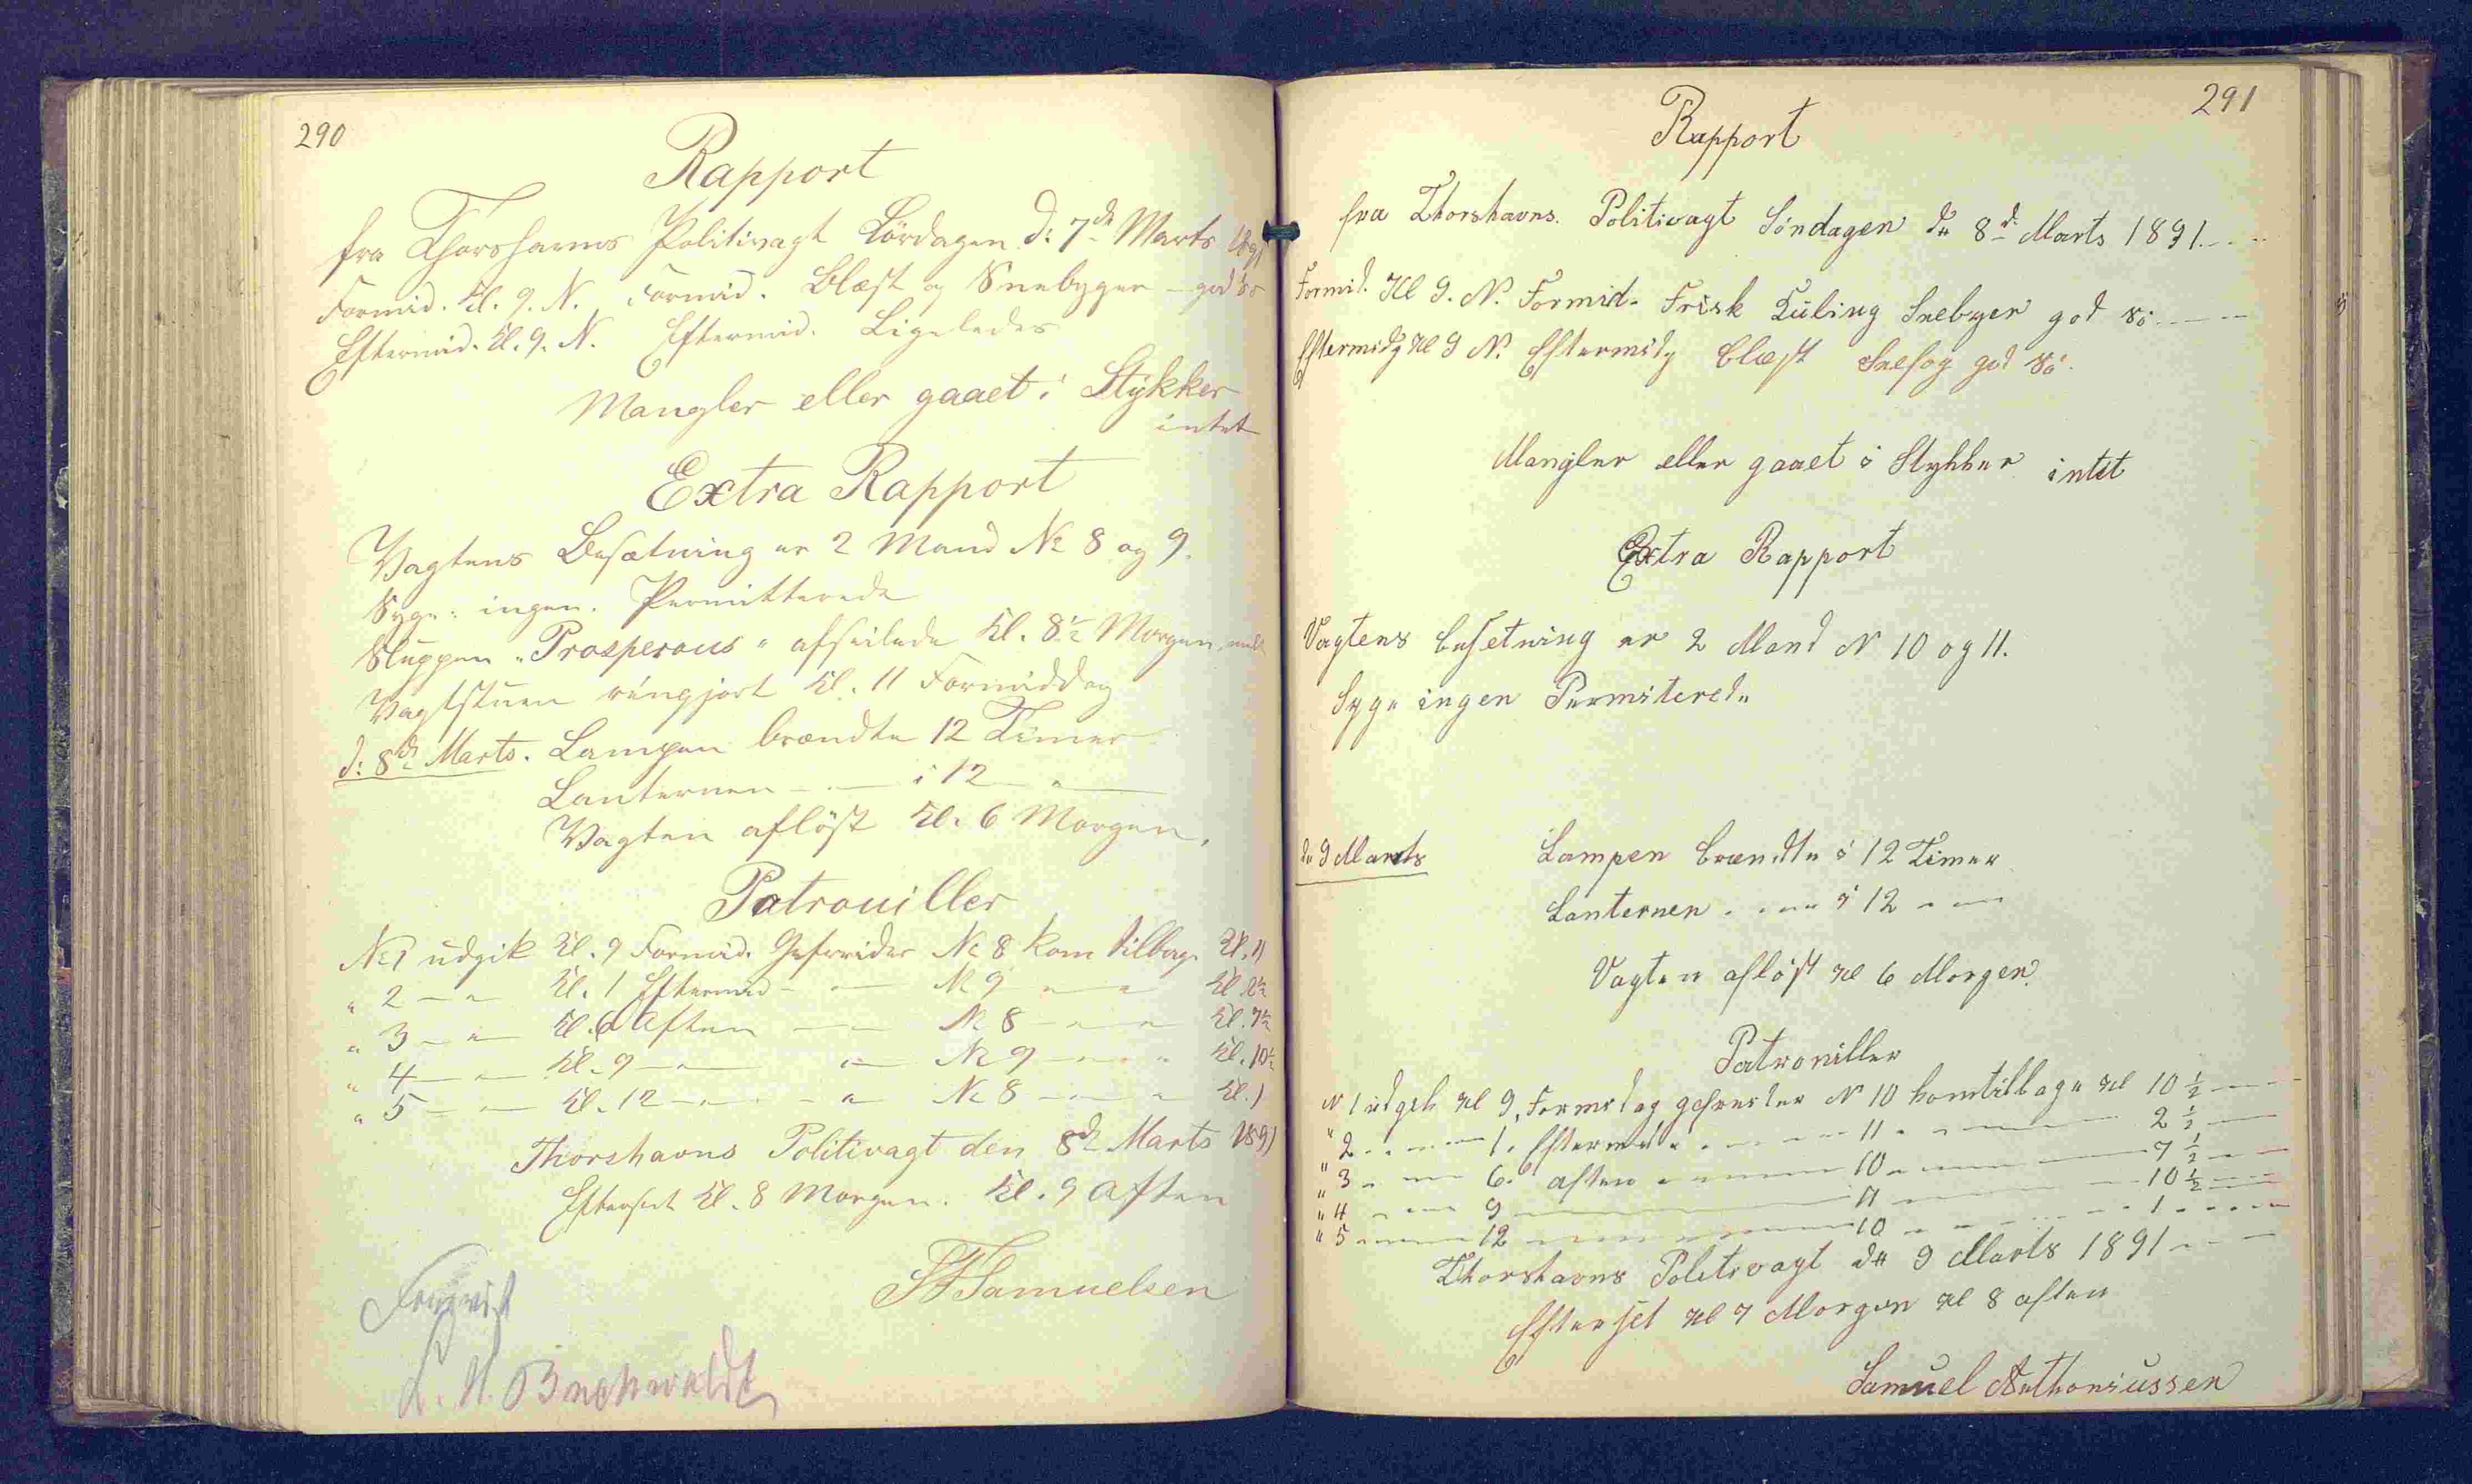 290
Rapport
fra Thorshavns Politivagt Lördagen d: 7de Marts 1891
Formid. Kl. 9. N. Formid. Blæst og Snebyger - god Sö
Eftermid. Kl. 9. N. Eftermid. Ligeledes
Mangler eller gaaet i Stykker
intet
Extra Rapport
Vagtens Besætning er 2 Mand No 8 og 9.
Syge: ingen. Permitterede
Sluppen "Prosperous" afseilede Kl. 8½ Morgen,
Vagtstuen rengjort Kl. 11 Formiddag
d: 8de Marts. Lampen brændte 12 Timer
Lanternen - " - i 12 - " -
Vagten aflöst Kl. 6 Morgen.
Patrouiller
No 1 udgik Kl. 9 Formid. Gefreider No 8 kom tilbage Kl. 11
" 2 - " Kl. 1 Eftermid - " - No 9 - " " Kl. 2½
" 3 - " Kl. 6 Aften - " - No 8 - " " Kl. 7½
" 4 - " - Kl. 9 - " - " - No 9 - " " Kl. 10½
" 5 - " - Kl. 12 - " - " - No 8 - " " Kl. 1
Thorshavns Politivagt den 8de Marts 1891
Efterset Kl. 8 Morgen. Kl. 9 Aften
Samuelsen
Forevist
Buchwaldt
291
Rapport
fra Thorshavns. Politivagt Söndagen d. 8de Marts 1891.
Formid. Kl 9. N. Formid. Frisk Kuling Snebyer god Sö
Eftermidg Kl 9 N. Eftermidg blæst Snefog god Sö.
Mangler eller gaaet i Stykker intet
Extra Rapport
Vagtens besetning er 2 Mand N 10 og 11.
Syge ingen Permiterede
d. 9 Marts Lampen brændte i 12 Timer
Lanternen . " " i 12 " "
Vagten aflöst Kl 6 Morgen.
Patroniller
N 1 udgek Kl 9, Formidag gefreider N 10 kom tilbage Kl 10½
" 2 " " 1. Eftermid " " 11 " " 2½
" 3 " " 6. aften " " 10 " " 7½
" 4 " " 9 " " 11 " " 10½
" 5 " " 12 " " 10 " " 1
Thorshavns Politivagt d. 9 Marts 1891
Efterset Kl 7 Morgen Kl 8 aften
Samuel Anthoniussen